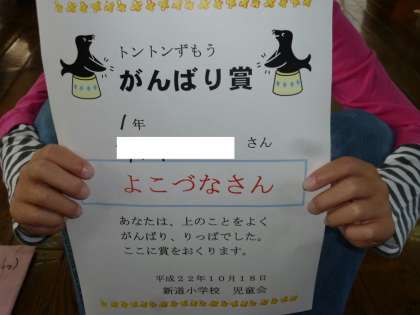 トントンずもう
がんばり賞
1年
さん
よこづなさん
あなたは、上のことをよく
がんばり、りっぱでした。
ここに賞をおくります。
平成22年10月18日
新道小学校　児童会